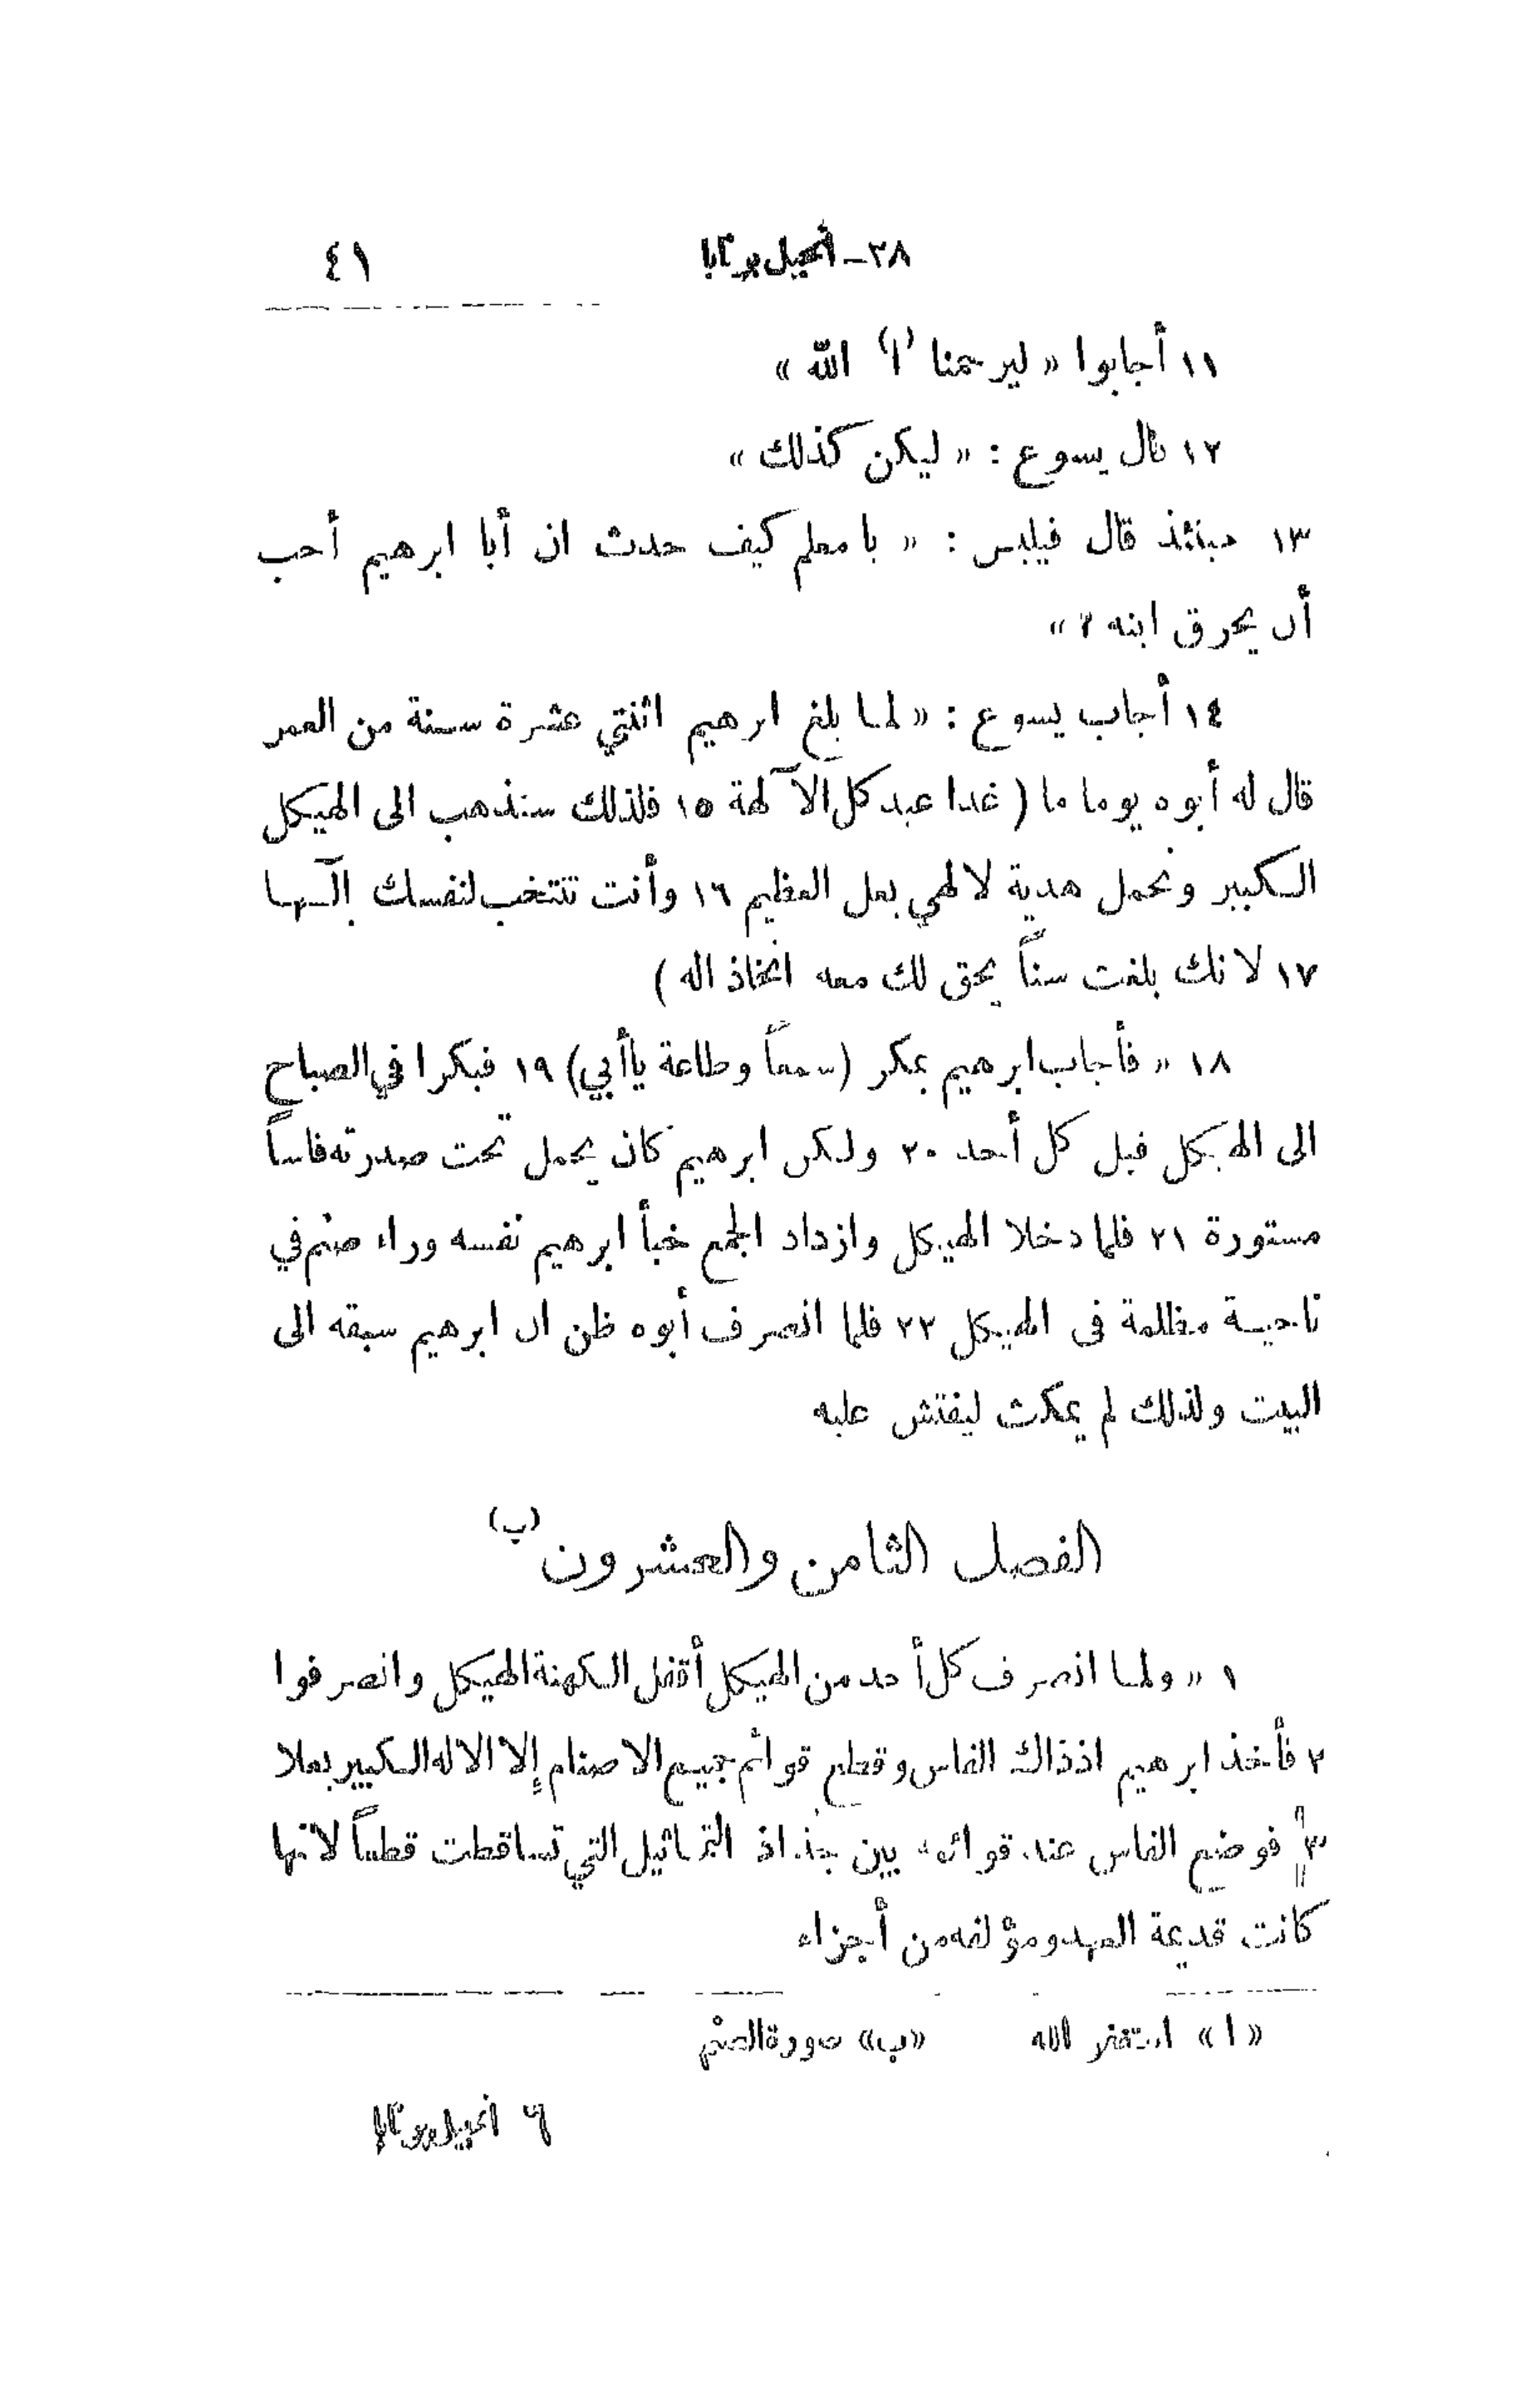 ٢٨ـ انجيل برنابا ٤١
١١ أجابوا « ليرحمنا (ا) الله »
١٢ قال يسوع : « ليكن كذلك »
١٣ حينئذ قال فيلبس : « يا معلم كيف حدث ان أبا ابرهيم أحب
أن يحرق ابنه ؟ »
١٤ أجاب يسوع : « لما بلغ ابرهيم اثنتي عشرة سنة من العمر
قال له أبوه يوما ما ( غدا عيد كل الآلهة ١٥ فلذلك سنذهب الى الهيكل
الكبير ونحمل هدية لالهي بعل العظيم ١٦ وأنت تنتخب لنفسك إلٓها
١٧ لانك بلغت سناً يحق لك معه اتخاذ اله )
١٨ « فأجاب ابرهيم بمكر (سمعاً وطاعة ياأبي) ١٩ فبكرا في الصباح
الى الهيكل قبل كل أحد ٢٠ ولكن ابرهيم كان يحمل تحت صدرته فاساً
مستورة ٢١ فلما دخلا الهيكل وازداد الجمع خبأ ابرهيم نفسه وراء صنم في
ناحية مظلمة في الهيكل ٢٢ فلما انصرف أبوه ظن ان ابرهيم سبقه الى
البيت ولذلك لم يمكث ليفتش عليه
الفصل الثامن والعشرون (ب)
١ « ولما انصرف كل أحد من الهيكل أقفل الكهنة الهيكل وانصرفوا
٢ فأخذ ابرهيم اذ ذاك الفاس وقطع قوائم جميع الاصنام إلا الاله الكبير بعلا
٣ فوضع الفاس عند قوائمه بين جذاذ التماثيل التي تساقطت قطعاً لانها
كانت قديمة العهد ومؤلفه من أجزاء
« ا » استغفر الله «ب» سورة الصنم
٦ انجيل برنابا